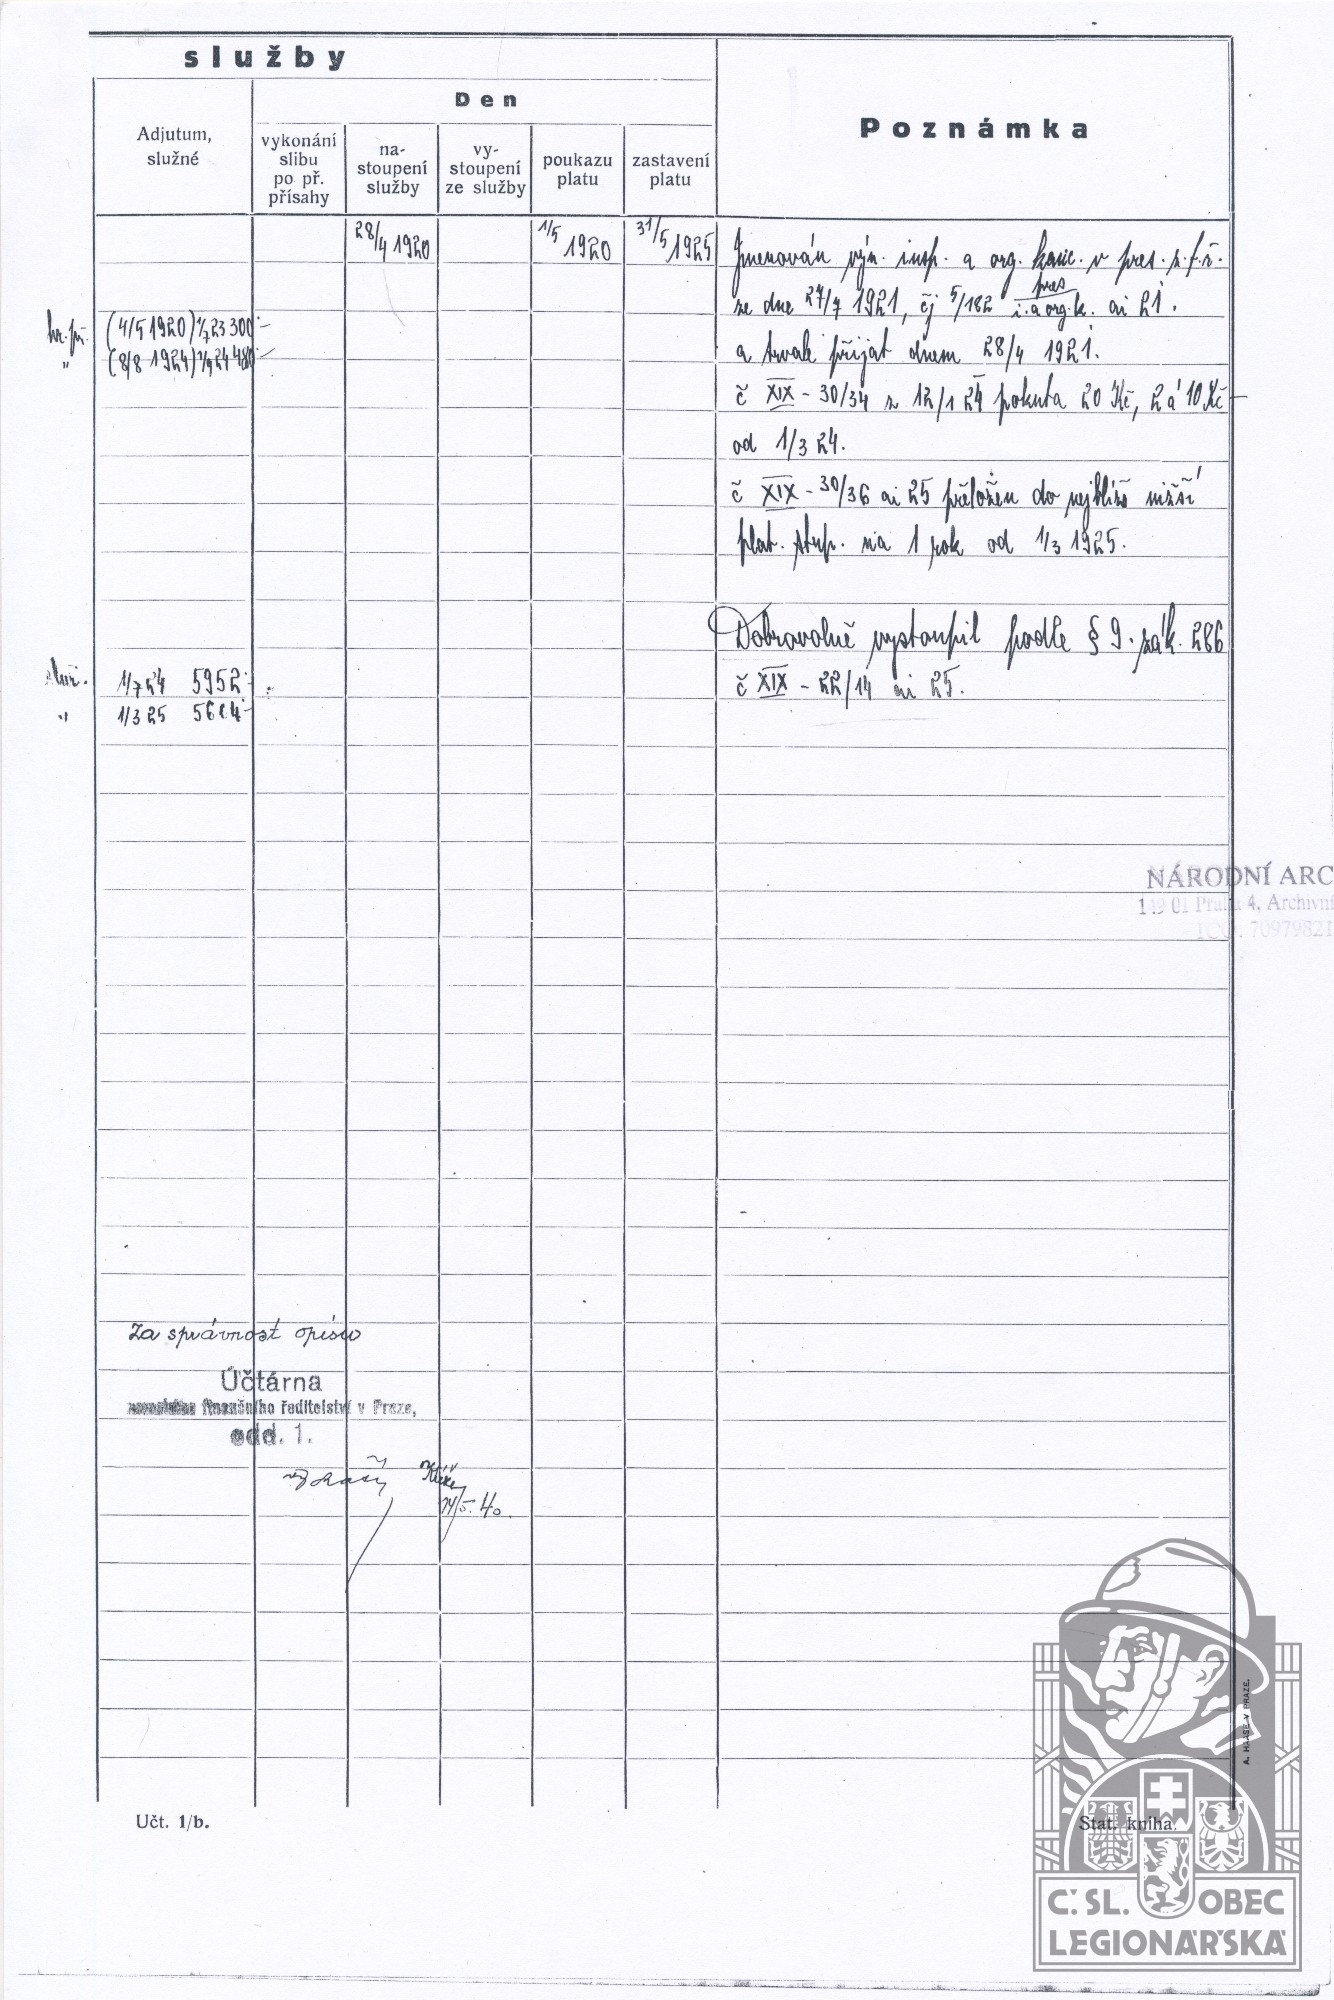 služby
Den
Poznámka
Adjutum,
služné
vykonání
slibu
po př.
přísahy
na-
stoupení
služby
vy-
stoupení
ze služby
poukazu
platu
zastavení
platu
28/4 1920
1/5 1920
31/5 1925
Jmenován výn. insp. a org. kanc. v pres. z.f.ř.
ze dne 27/7 1921, čj 5/182 pres i.a org.k. ai 21.
a trvale přijat dnem 28/4 1921.
č XIX - 30/34 z 12/1 24 pokuta 20 Kč, 2 á 10 Kč
od 1/3 24.
č XIX - 30/36 ai 25 přeložen do nejblíže nižší
plat. stup. na 1 rok od 1/3 1925.
Dobrovolně vystoupil podle § 9. zák. 286
č XIX - 22/14 ai 25.
(4/5 1920)
" (8/8 1924)
služ. 1/7 24 5952.-
" 1/3 25
NÁRODNÍ ARC
149 01 Praha 4, Archivní
IČO: 70979821
Za správnost opisu
Účtárna
finančního ředitelství v Praze,
odd. 1.
14/5. 40.
A. HAASE V PRAZE.
Účt. 1/b.
Stat. kniha.
Č. SL. OBEC
LEGIONÁŘSKÁ